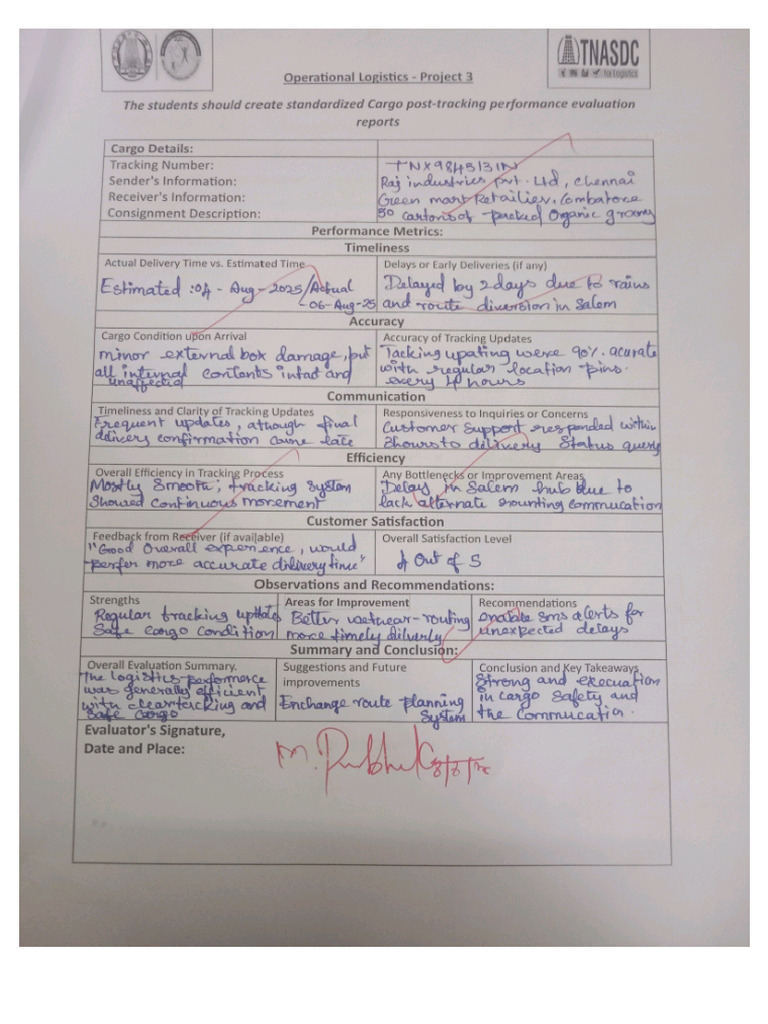 TNASDC
for Logistics
Operational Logistics - Project 3
The students should create standardized Cargo post-tracking performance evaluation
reports
Cargo Details:
Tracking Number: TNX9845131N
Sender's Information: Raj industries pvt. Ltd, chennai
Receiver's Information: Green mart Retailier, Combatore
Consignment Description: 50 cartons of packed Organic grocery
Performance Metrics:
Timeliness
Actual Delivery Time vs. Estimated Time
Estimated :04 - Aug - 2025/Actual
- 06-Aug-25
Delays or Early Deliveries (if any)
Delayed by 2 days due to rains
and route diversion in Salem
Accuracy
Cargo Condition upon Arrival
minor external box damage, but
all internal contents intact and
unaffected
Accuracy of Tracking Updates
Tacking upating were 90%. acurate
with regular location pins.
every 4 hours
Communication
Timeliness and Clarity of Tracking Updates
Frequent updates, athough final
delivery confirmation came late
Responsiveness to Inquiries or Concerns
Customer Support responded within
3hours to delivery Status query
Efficiency
Overall Efficiency in Tracking Process
Mostly Smooth; tracking system
Showed continuous movement
Any Bottlenecks or Improvement Areas
Delay in Salem hub due to
lack alternate commucation
Customer Satisfaction
Feedback from Receiver (if available)
"Good Overall experience, would
perfer more accurate delivery time"
Overall Satisfaction Level
4 Out of 5
Observations and Recommendations:
Strengths
Regular tracking updates
Safe cargo condition
Areas for Improvement
Better routing
more timely dilverly
Recommendations
enable sms alerts for
unexpected delays
Summary and Conclusion:
Overall Evaluation Summary.
The logistics performence
was generally efficient
with clear tercking and
Safe cargo
Suggestions and Future
improvements
Enchange route planning
System
Conclusion and Key Takeaways
Strong and execuation
in cargo Safety and
the Commucation.
Evaluator's Signature,
Date and Place: